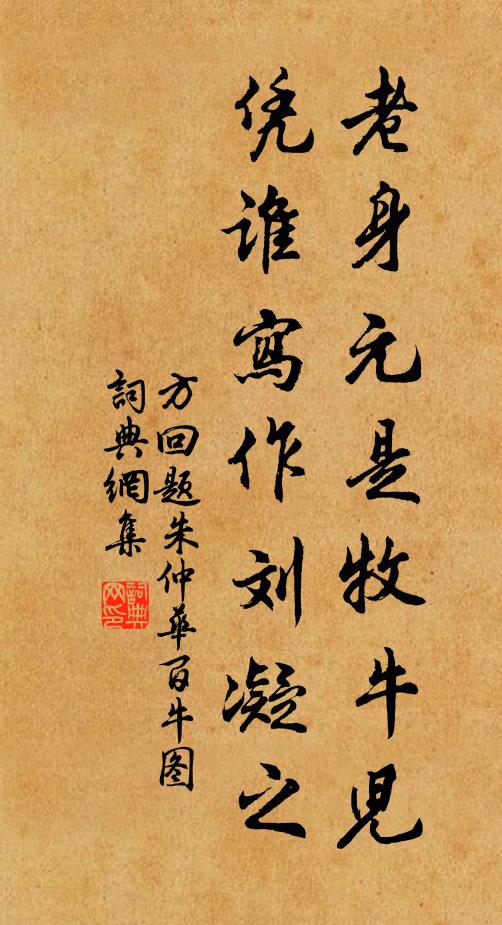 老身元是牧牛児
凭谁寫作刘凝之
方回题朱仲華百牛图
詞典網集
詞典网印